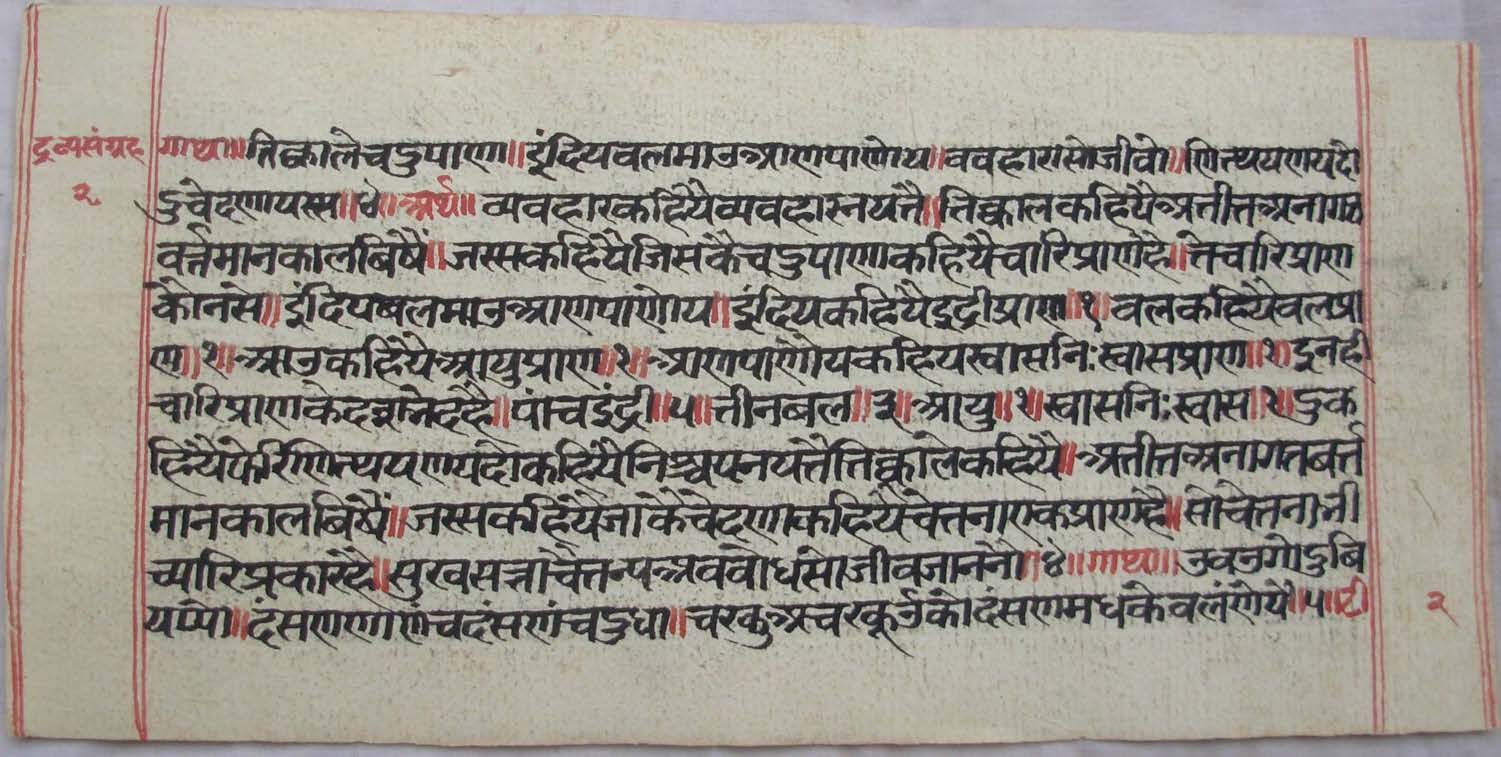 द्रव्यसंग्रह
२
गाथा॥तिक्कालेचदुपाणा॥इंदियबलमाउआणपाणोय॥ववहारासोजीवो॥णित्थयणयदो
दुचेदणाजस्स॥४॥अर्थ॥व्यवहारकहियैव्यवहारनयतै॥तिक्कालकहियैअतीतअनागत
वर्त्तमानकालबिषैं॥जस्सकहियैजिसकैचदुपाणाकहियैचारिप्राणहै॥तेचारिप्राण
कोनसे॥इंदियबलमाउआणपाणोय॥इंदियकहियैइंद्रीप्राण॥१॥बलकहियैबलप्रा
ण॥१॥आउकहियैआयुप्राण॥१॥आणपाणोयकहियस्वासनिःस्वासप्राण॥१॥इनही
चारिप्राणकेदशभेदहै॥पांचइंद्री॥५॥तीनबल॥३॥आयु॥१॥स्वासनिःस्वास॥१॥दुक
हियैफेरिणित्थयणयदोकहियैनिश्चयनयतैतिक्कालेकहियै॥अतीतअनागतबर्त्त
मानकालबिषैं॥जस्सकहियैजाकैचेदणाकहियैचेतनाएकप्राणहै॥सोचेतनाभी
च्यारिप्रकारहै॥सुखसत्ताचैतन्यअवबोधसोजीवजाननो॥४॥गाथा॥उवउगोदुबि
यप्पो॥दंसणणाणंचदंसणंचदुधा॥चरकुअचरकूउंकीदंसणमधकेवलंणेयं॥५॥टी
२